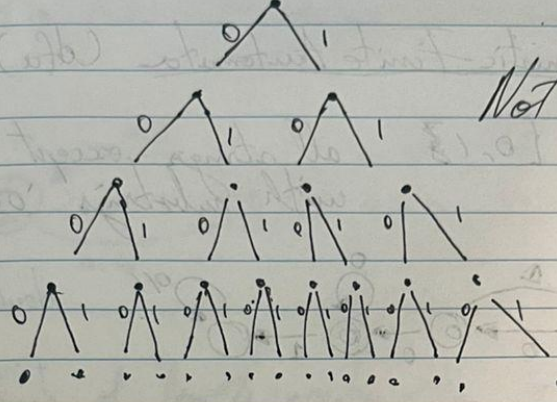 0 1
Not
0 1 0 1
0 1 0 1 0 1 0 1
0 1 0 1 0 1 0 1 0 1 0 1 0 1 0 1